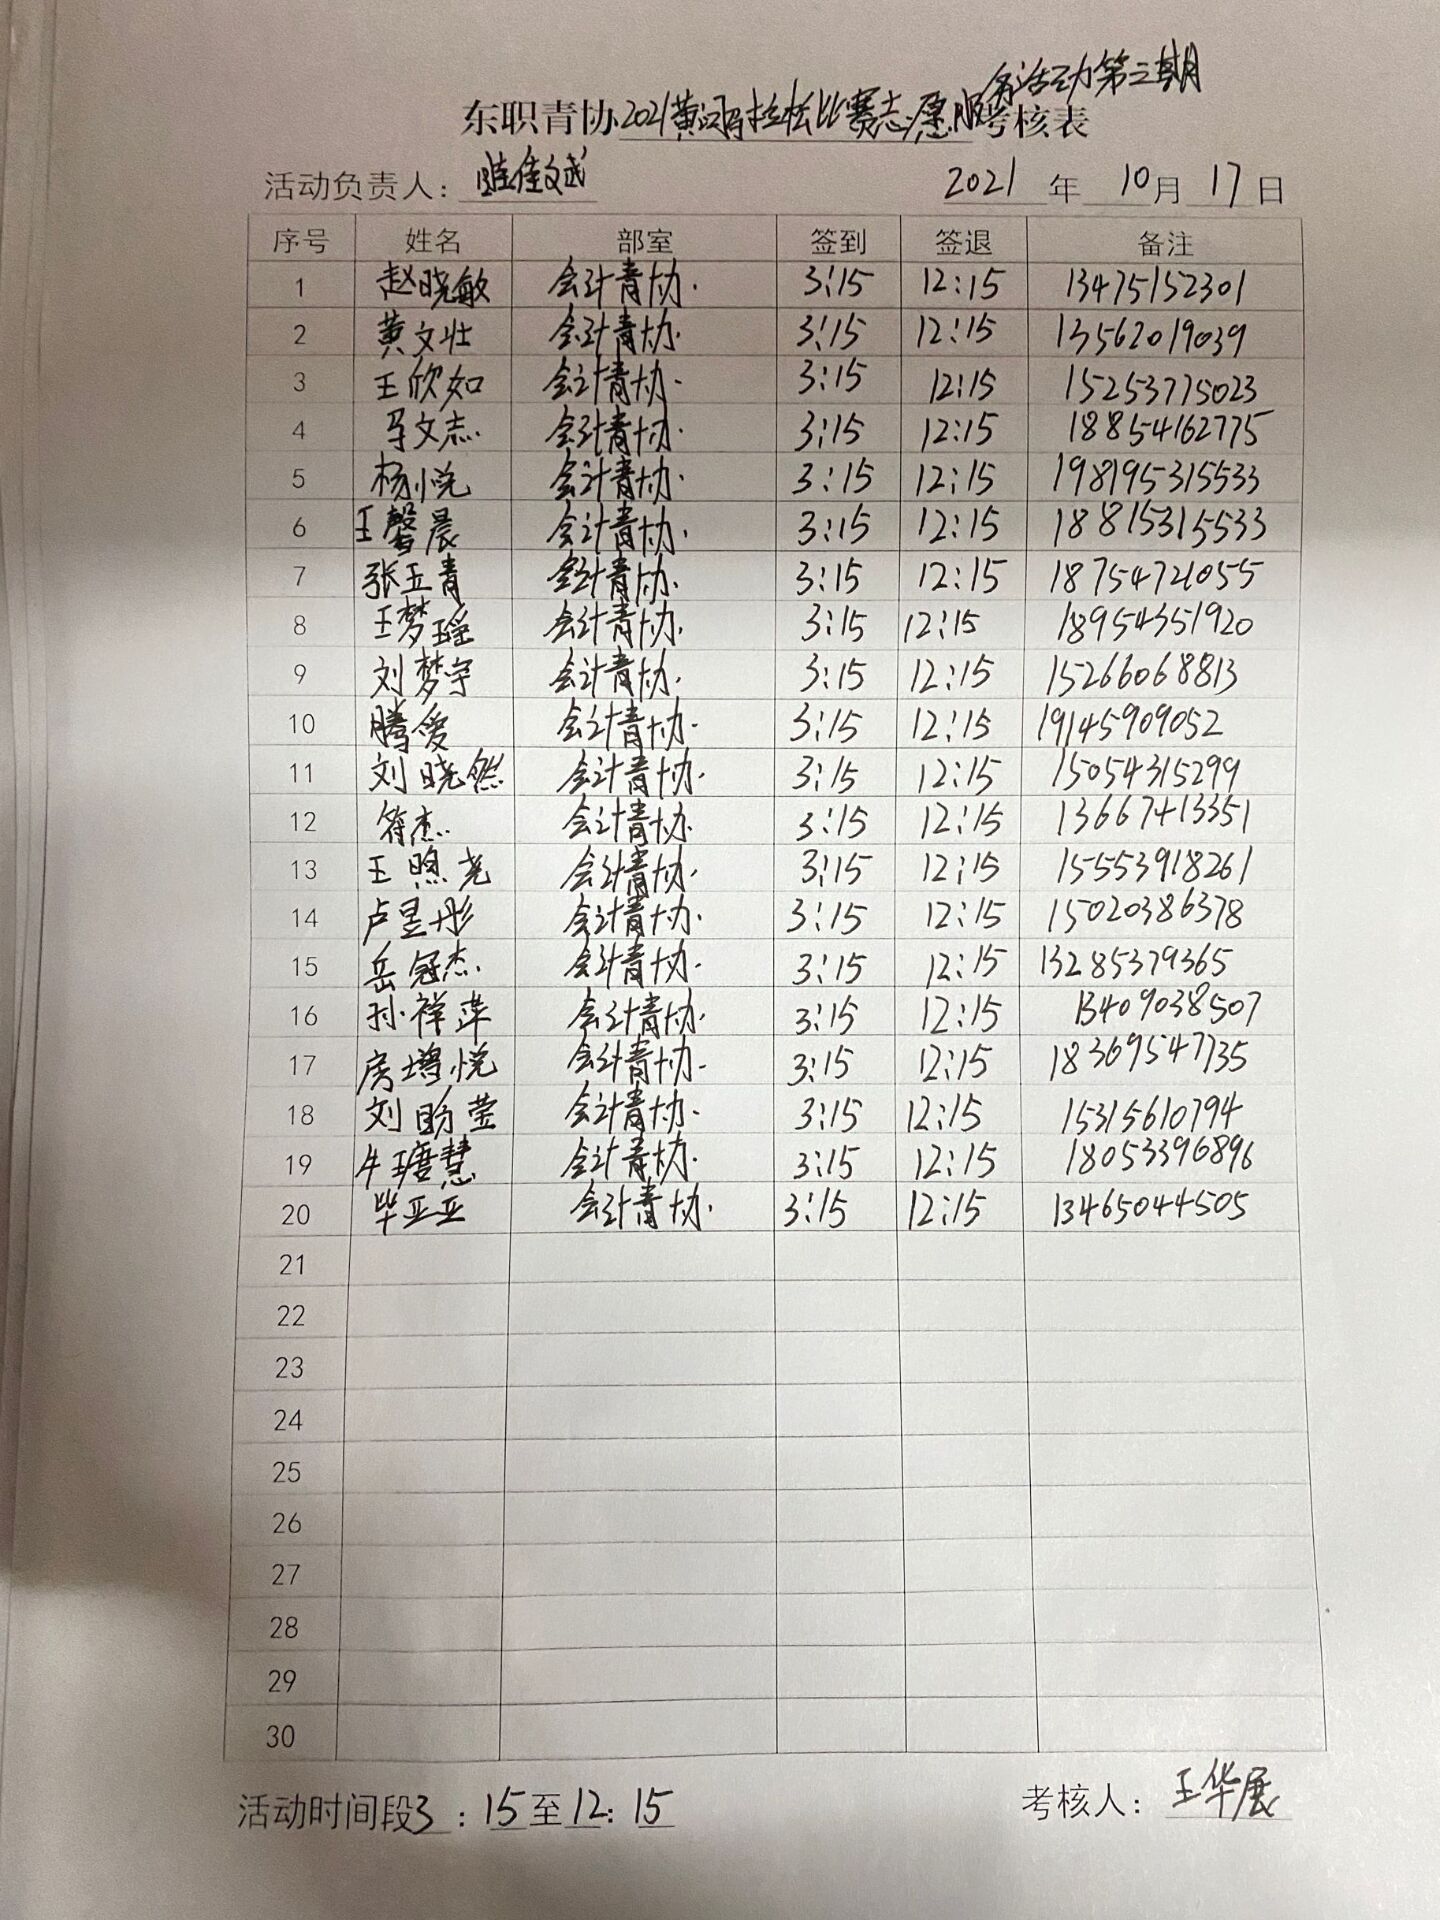 务活动第三期
东职青协2021黄河马拉松比赛志愿服考核表
活动负责人：佳斌 2021年10月17日
序号 姓名 部室 签到 签退 备注
1 赵晓敏 会计青协. 3:15 12:15 13475152301
2 黄文壮 会计青协. 3:15 12:15 13562019039
3 王欣如 会计青协. 3:15 12:15 15253775023
4 马文志 会计青协. 3:15 12:15 18854162775
5 杨小悦 会计青协. 3:15 12:15 198195315533
6 王馨晨 会计青协. 3:15 12:15 18815315533
7 张玉青 会计青协. 3:15 12:15 18754721055
8 王梦瑶 会计青协. 3:15 12:15 18954351920
9 刘梦宇 会计青协. 3:15 12:15 15266068813
10 腾爱 会计青协. 3:15 12:15 19145909052
11 刘晓然 会计青协. 3:15 12:15 15054315299
12 符杰 会计青协. 3:15 12:15 13667413351
13 王煦尧 会计青协. 3:15 12:15 15553918261
14 卢昱彤 会计青协. 3:15 12:15 15020386378
15 岳冠杰 会计青协. 3:15 12:15 13285379365
16 孙祥萍 会计青协. 3:15 12:15 13409038507
17 房悦 会计青协. 3:15 12:15 18369547735
18 刘盼莹 会计青协. 3:15 12:15 15315610794
19 牛瑭慧 会计青协. 3:15 12:15 18053396896
20 毕亚亚 会计青协. 3:15 12:15 13465044505
21
22
23
24
25
26
27
28
29
30
活动时间段3：15至12：15 考核人：王华展